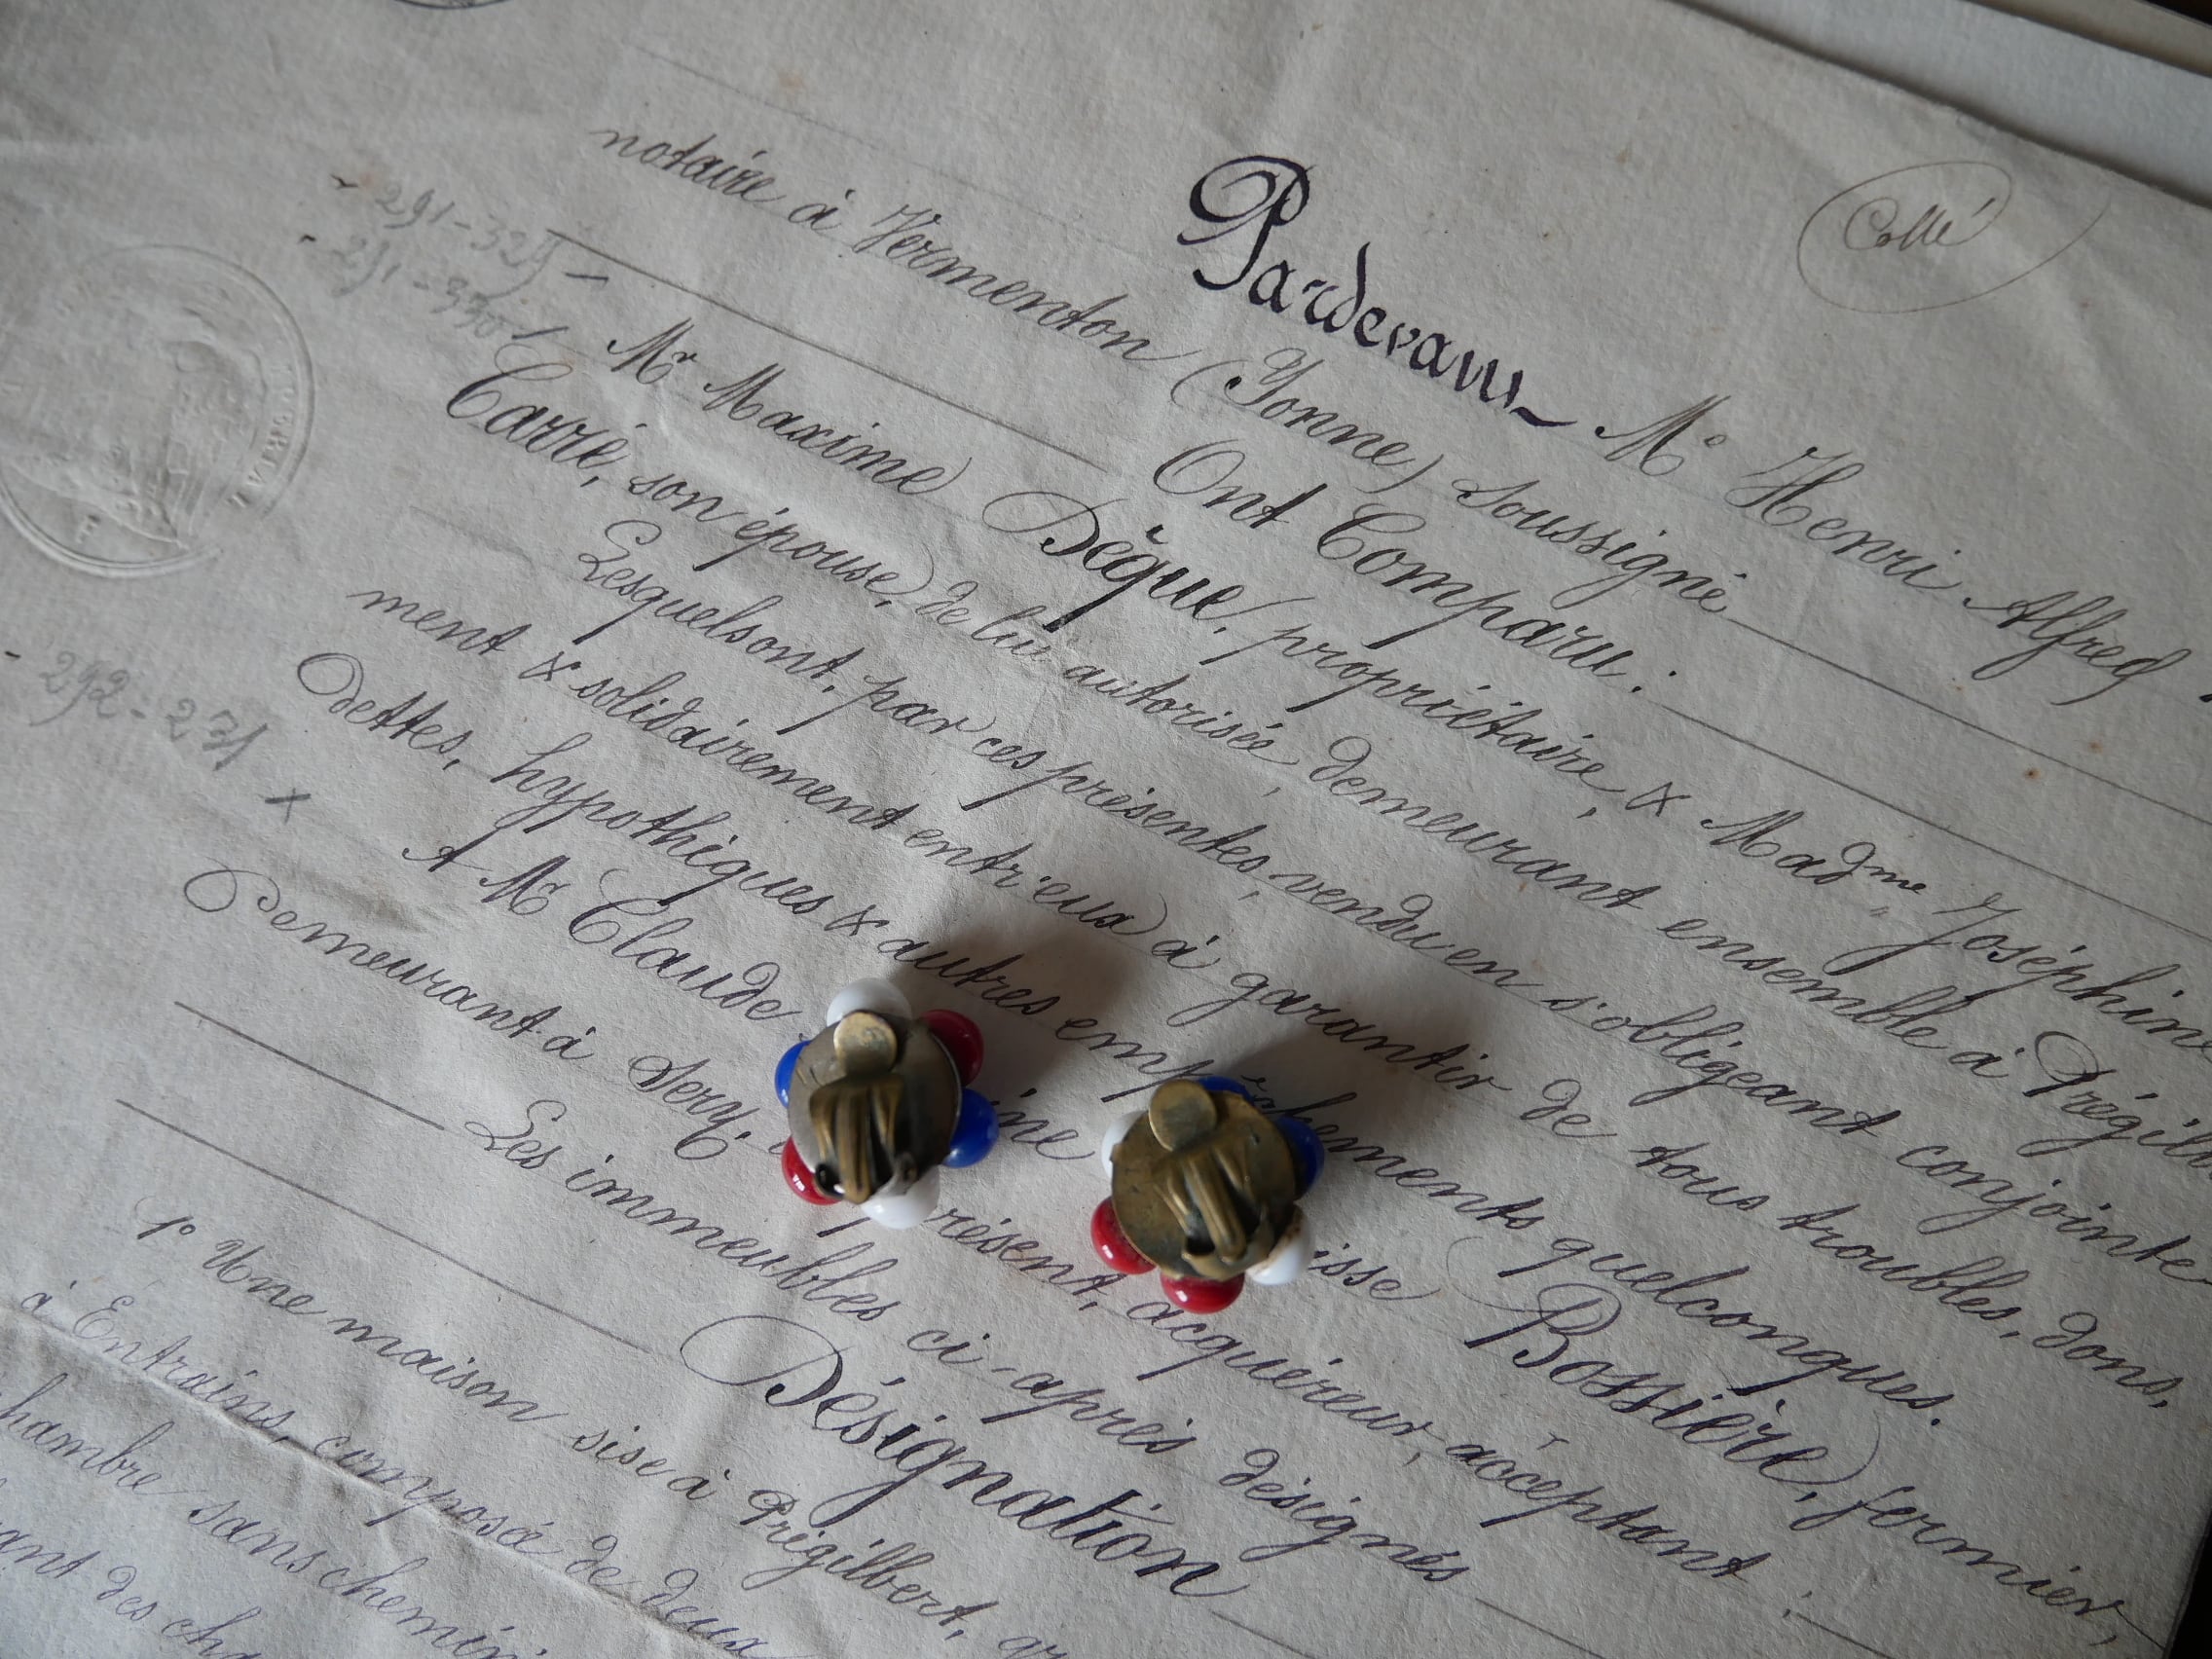 Collé
Pardevant Me Henri Alfred
notaire à Vermenton (Yonne) soussigné
Ont Comparu:
Mr Maxime Dèque, propriétaire, & Madme Joséphine
Carré, son épouse, de lui autorisée, demeurant ensemble à Prégilb
Lesquels ont, par ces présentes, vendu en s'obligeant conjointe
ment & solidairement entr'eux à garantir de tous troubles, dons,
dettes, hypothèques & autres empêchements quelconques.
A Mr Claude Bossière, fermier,
Demeurant à Sery, présent, acquéreur, acceptant:
Les immeubles ci-après désignés
Désignation
1° Une maison sise à Prégilbert,
à Entrains, composée de deux
hambre sans chemin
ant des cha
- 291-325 -
- 291-330 -
- 292-271 x